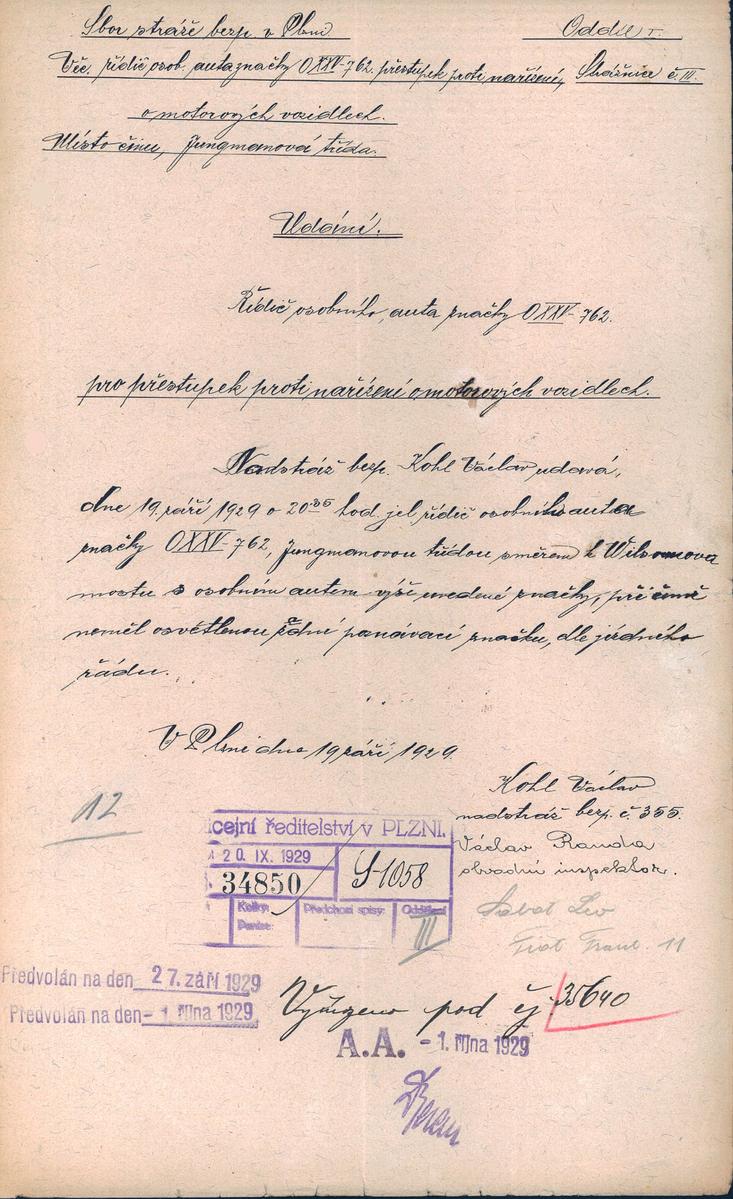 Sbor stráže bezp. v Plzni
Oddíl I.
Věc. řidič osob. auta značky O XXV-762. přestupek proti nařízení, Strážnice č. III.
o motorových vozidlech.
Místo činu, Jungmanová třída.
Udání.
Řidič osobního, auta značky O XXV-762.
pro přestupek proti nařízení o motorových vozidlech.
Nadstráž bezp. Kohl Václav udává,
dne 19. září 1929 o 20 35 hod. jel řidič osobního auta
značky O XXV-762, Jungmanovou třídou směrem k Wilsonova
mostu s osobním autem výší uvedené značky, při čemž
neměl osvětlenou značku, dle jízdního
řádu.
V Plzni dne 19 září 1929.
Kohl Václav
nadstráž bezp. č 355.
Václav Randa
obvodní inspektor.
12
icejní ředitelství v PLZNI.
20. IX. 1929
34850
S-1058
Kolky:
Peníze:
Předchozí spisy:
Oddělení
III
11
Předvolán na den 27. září 1929
Předvolán na den - 1. října 1929
Vyřízeno pod čj 35640
A.A. - 1. října 1929